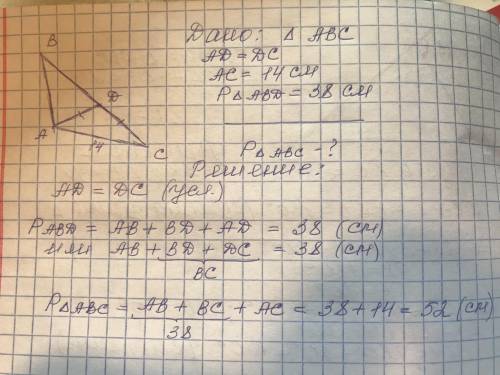 Дано: Δ ABC
AD = DC
AC = 14 см
P Δ ABD = 38 см
P Δ ABC - ?
Решение:
B
D
A
14
C
AD = DC (усл.)
P ABD = AB + BD + AD = 38 (см)
или AB + BD + DC = 38 (см)
BC
P Δ ABC = AB + BC + AC = 38 + 14 = 52 (см)
38